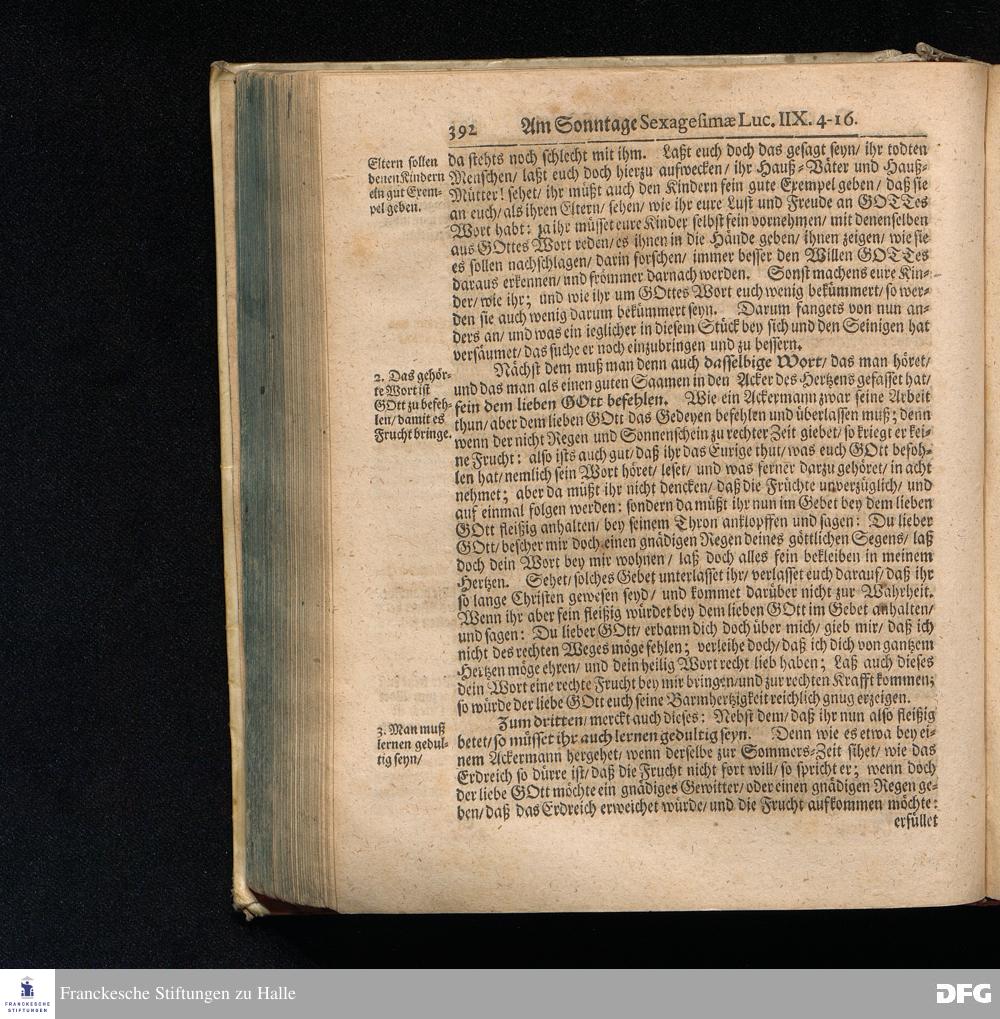 392 Am Sonntage Sexagesimæ Luc. IIX. 4-16.
Eltern sollen
denen Kindern
ein gut Exem-
pel geben.
da stehts noch schlecht mit ihm. Laßt euch doch das gesagt seyn/ ihr todten
Menschen/ laßt euch doch hierzu aufwecken/ ihr Hauß-Väter und Hauß-
Mütter! sehet/ ihr müßt auch den Kindern fein gute Exempel geben/ daß sie
an euch/ als ihren Eltern/ sehen/ wie ihr eure Lust und Freude an GOTTes
Wort habt: ja ihr müsset eure Kinder selbst fein vornehmen/ mit denenselben
aus GOttes Wort reden/ es ihnen in die Hände geben/ ihnen zeigen/ wie sie
es sollen nachschlagen/ darin forschen/ immer besser den Willen GOTTes
daraus erkennen/ und frömmer darnach werden. Sonst machens eure Kin-
der/ wie ihr; und wie ihr um GOttes Wort euch wenig bekümmert/ so wer-
den sie auch wenig darum bekümmert seyn. Darum fangets von nun an-
ders an/ und was ein ieglicher in diesem Stück bey sich und den Seinigen hat
versäumet/ das suche er noch einzubringen und zu bessern.
2. Das gehör-
te Wort ist
GOtt zu befeh-
len/ damit es
Frucht bringe.
Nächst dem muß man denn auch dasselbige Wort/ das man höret/
und das man als einen guten Saamen in den Acker des Hertzens gefasset hat/
fein dem lieben GOtt befehlen. Wie ein Ackermann zwar seine Arbeit
thun/ aber dem lieben GOtt das Gedeyen befehlen und überlassen muß; denn
wenn der nicht Regen und Sonnenschein zu rechter Zeit giebet/ so kriegt er kei-
ne Frucht: also ists auch gut/ daß ihr das Eurige thut/ was euch GOtt befoh-
len hat/ nemlich sein Wort höret/ leset/ und was ferner darzu gehöret/ in acht
nehmet; aber da müßt ihr nicht dencken/ daß die Früchte unverzüglich/ und
auf einmal folgen werden: sondern da müßt ihr nun im Gebet bey dem lieben
GOtt fleißig anhalten/ bey seinem Thron anklopffen und sagen: Du lieber
GOtt/ bescher mir doch einen gnädigen Regen deines göttlichen Segens/ laß
doch dein Wort bey mir wohnen/ laß doch alles fein bekleiben in meinem
Hertzen. Sehet/ solches Gebet unterlasset ihr/ verlasset euch darauf/ daß ihr
so lange Christen gewesen seyd/ und kommet darüber nicht zur Wahrheit.
Wenn ihr aber fein fleißig würdet bey dem lieben GOtt im Gebet anhalten/
und sagen: Du lieber GOtt/ erbarm dich doch über mich/ gieb mir/ daß ich
nicht des rechten Weges möge fehlen; verleihe doch/ daß ich dich von gantzem
Hertzen möge ehren/ und dein heilig Wort recht lieb haben; Laß auch dieses
dein Wort eine rechte Frucht bey mir bringen/ und zur rechten Krafft kommen;
so würde der liebe GOtt euch seine Barmhertzigkeit reichlich gnug erzeigen.
3. Man muß
lernen gedul-
tig seyn/
Zum dritten/ merckt auch dieses: Nebst dem/ daß ihr nun also fleißig
betet/ so müsset ihr auch lernen gedultig seyn. Denn wie es etwa bey ei-
nem Ackermann hergehet/ wenn derselbe zur Sommers-Zeit sihet/ wie das
Erdreich so dürre ist/ daß die Frucht nicht fort will/ so spricht er; wenn doch
der liebe GOtt möchte ein gnädiges Gewitter/ oder einen gnädigen Regen ge-
ben/ daß das Erdreich erweichet würde/ und die Frucht aufkommen möchte:
erfüllet
FRANCKESCHE
STIFTUNGEN
Franckesche Stiftungen zu Halle
DFG